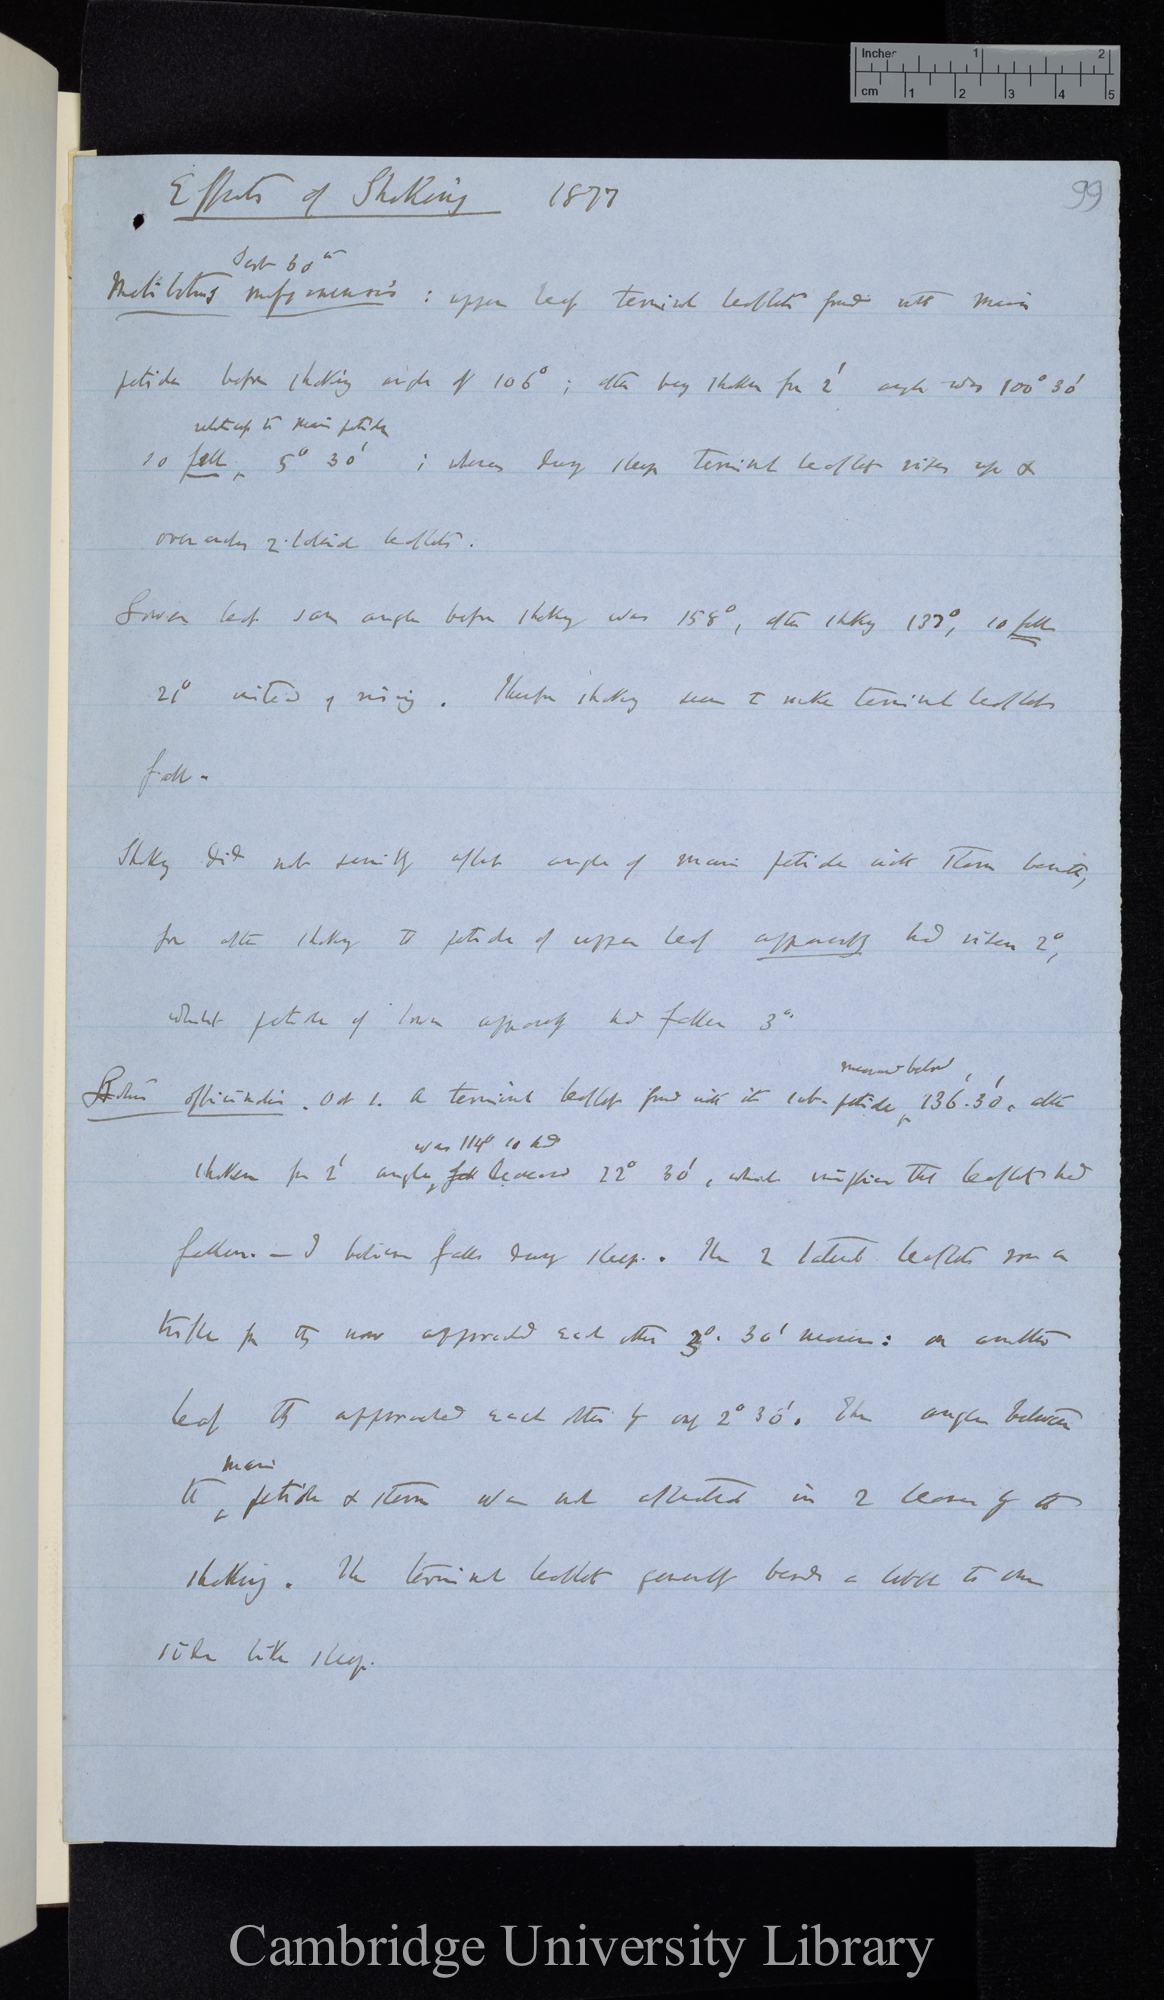 Inches 1 2
cm 1 2 3 4 5
99
Effects of Shaking 1877
Sept 30th
Melilotus : upper leaf terminal leaflets formed with main
petiole before shaking angle of 106°; after being shaken for 2' angle was 100° 30'
relatively to main petiole
so fell 5° 30' ; whereas during sleep terminal leaflet rises up &
over arches 2 lateral leaflets.
Lower leaf same angle before shaking was 158°, after shaking 137°, so fell
21° instead of rising. Therefore shaking seems to make terminal leaflets
fall.
Shaking did not sensibly affect angle of main petiole with stem beneath,
for after shaking the petiole of upper leaf apparently had risen 2°,
whilst petiole of lower apparently had fallen 3°.
measured below
officinalis. Oct 1. A terminal leaflet formed with its sub-petiole, 136°. 30', after
was 114° so had
shaken for 2' angle fell decreased 22° 30', which implies that leaflet had
fallen. — I believe falls during sleep. The 2 lateral leaflets rose a
trifle for they now approached each other 3°. 30' nearer: on another
leaf they approached each other by only 2° 30'. The angle between
main
the petiole & stem was not affected in 2 leaves by the
shaking. The terminal leaflet generally bends a little to one
side like sleep.
Cambridge University Library